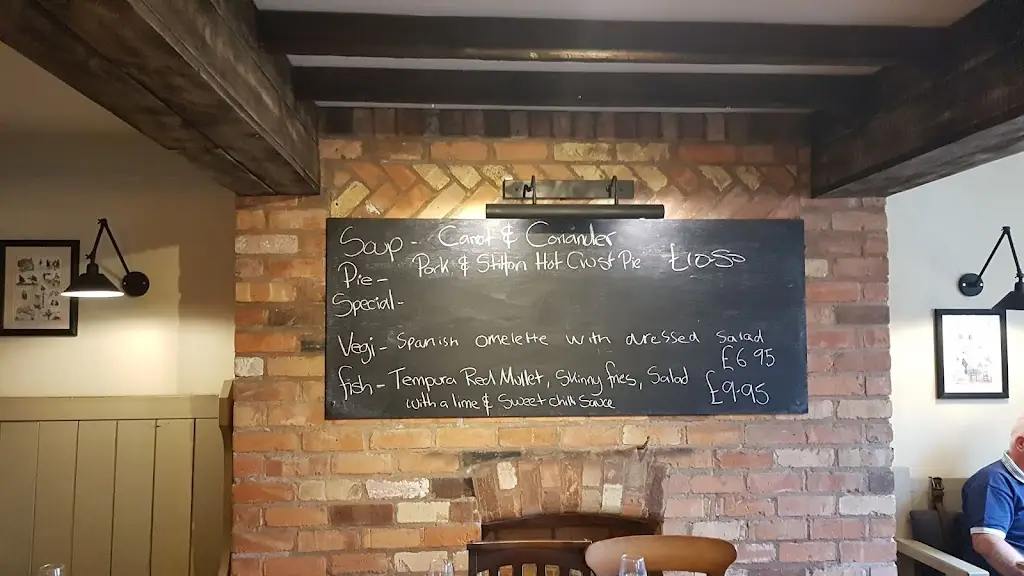 Soup - Carrot & Coriander
Pie - Pork & Stilton Hot Crust Pie £10.50
Special -
Vegi - Spanish omelette with dressed Salad
£6.95
fish - Tempura Red Mullet, Skinny fries, Salad £9.95
with a lime & Sweet chilli Sauce